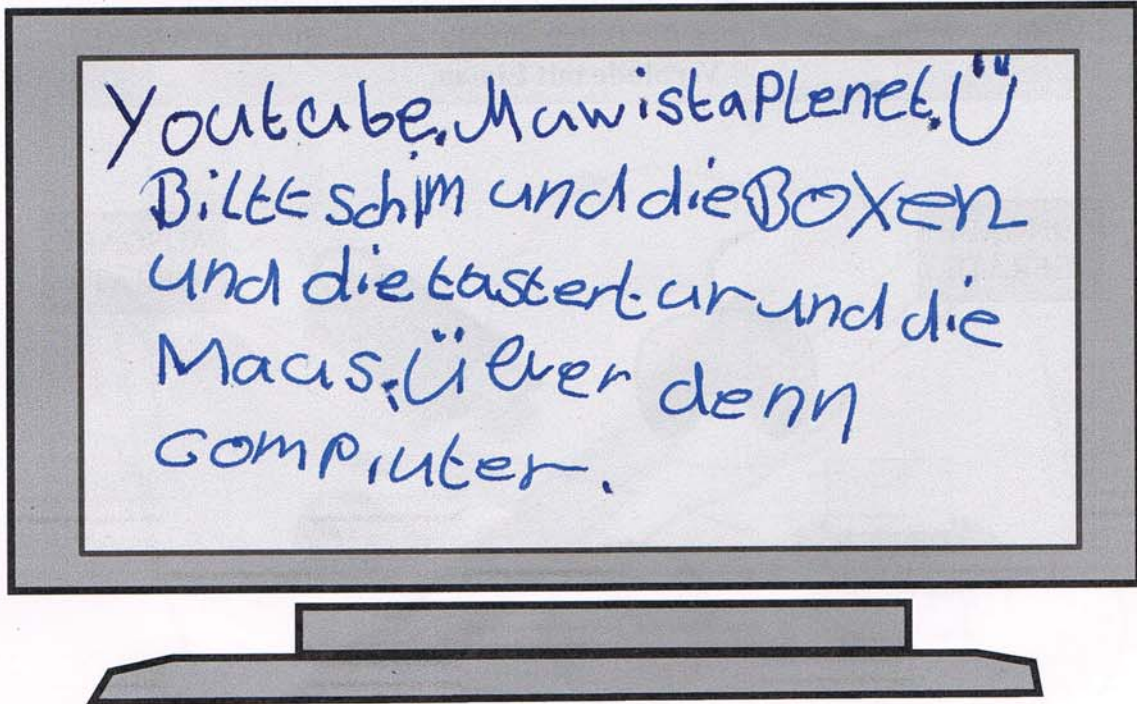 Youtube. MawistaPlenet. Ü
Biltt schim und die Boxen
und die tastertur und die
Maus. Über denn
Compiuter.